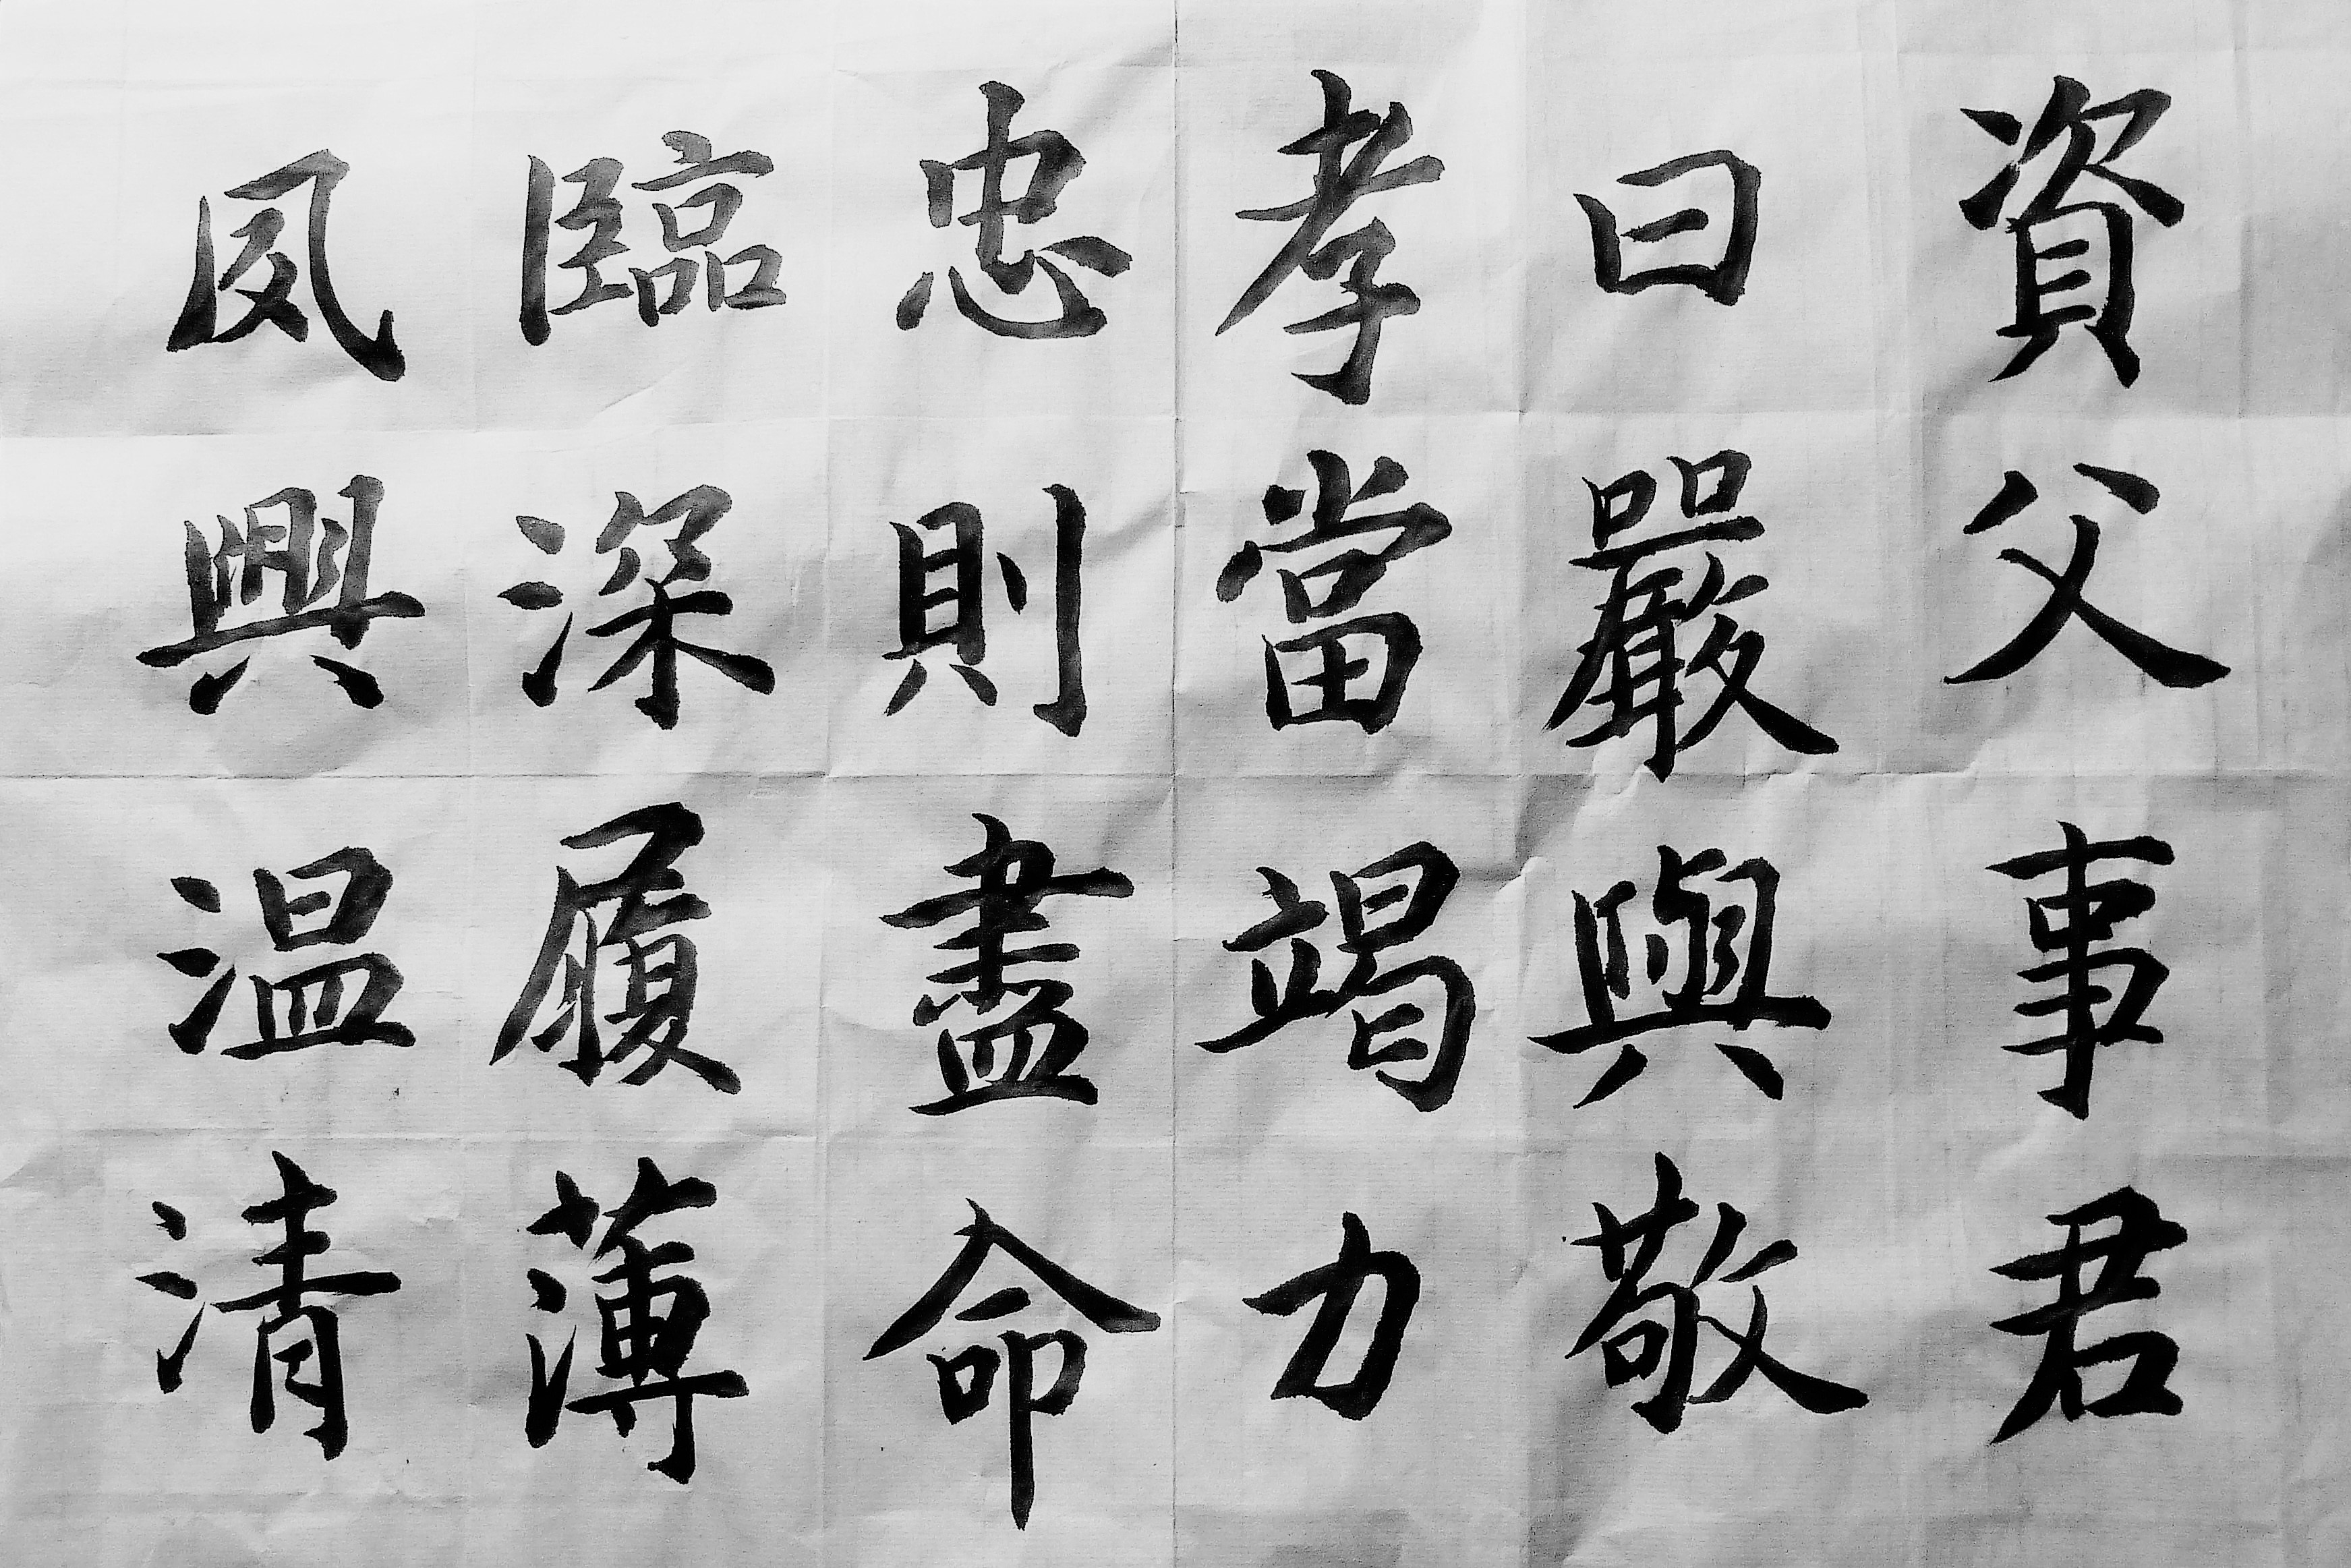 資父事君
曰嚴與敬
孝當竭力
忠則盡命
臨深履薄
夙興温清